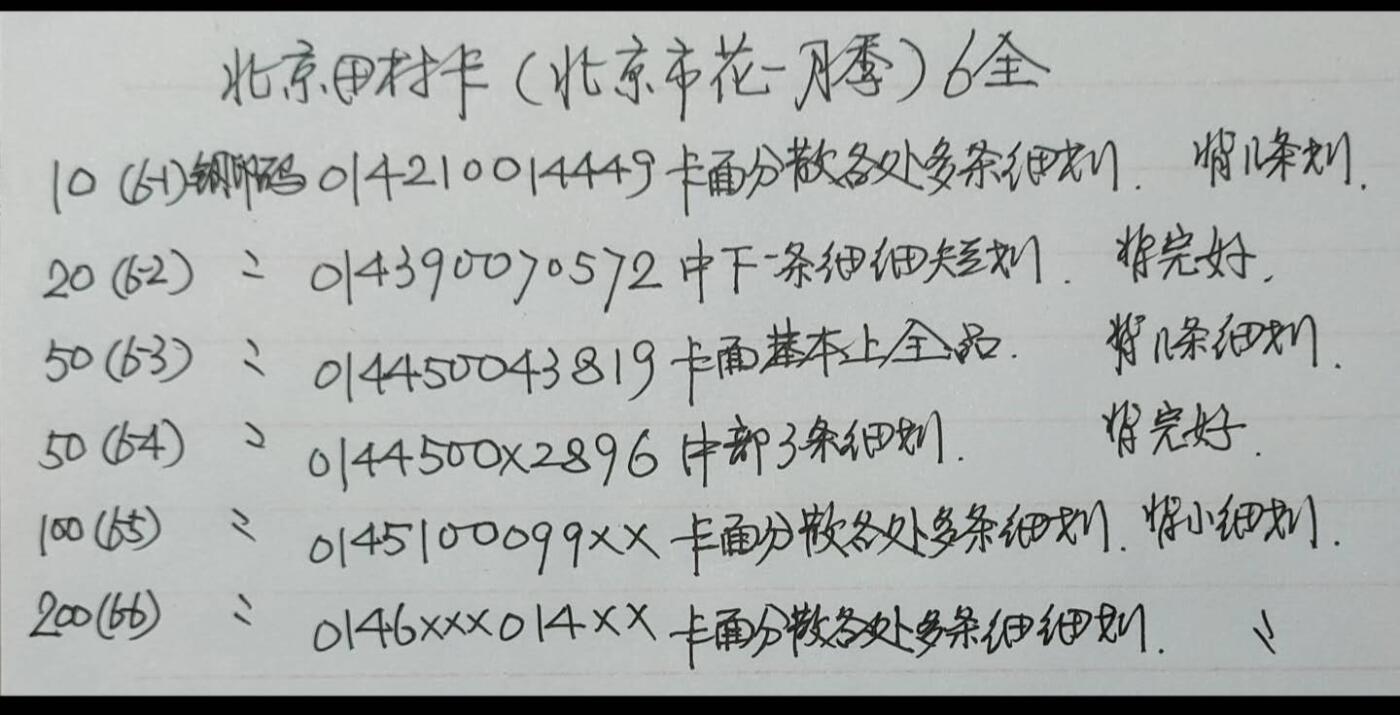 北京田村卡(北京市花一月季)6全
10(6-1)钢印码 014210014449 卡面分散各处多条细划. 背几条划.
20(6-2) 〃 014390070572 中下一条细细短划. 背完好.
50(6-3) 〃 014450043819 卡面基本上全品. 背几条细划.
50(6-4) 〃 0144500×2896 中部3条细划. 背完好.
100(6-5) 〃 0145100099×× 卡面分散各处多条细划. 背小细划.
200(6-6) 〃 0146×××014×× 卡面分散各处多条细细划. 〃